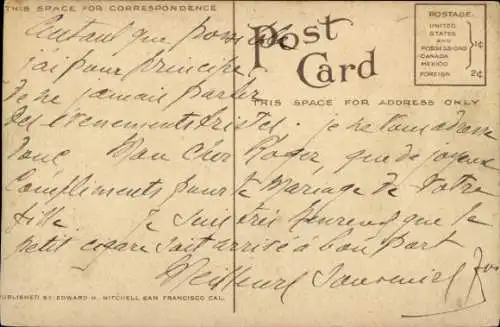 THIS SPACE FOR CORRESPONDENCE
Post Card
THIS SPACE FOR ADDRESS ONLY
POSTAGE.
UNITED STATES AND POSSESSIONS CANADA MEXICO 1¢
FOREIGN 2¢
Autant que possible
j'ai pour principe
de ne jamais parler
des évènements tristes. je ne vous adresse
donc Mon Cher Roger, que de joyeux
Compliments pour le Mariage de Votre
fille. Je suis très heureux que le
petit cigare soit arrivé à bon port
Meilleurs Souvenirs
PUBLISHED BY EDWARD H. MITCHELL SAN FRANCISCO CAL.